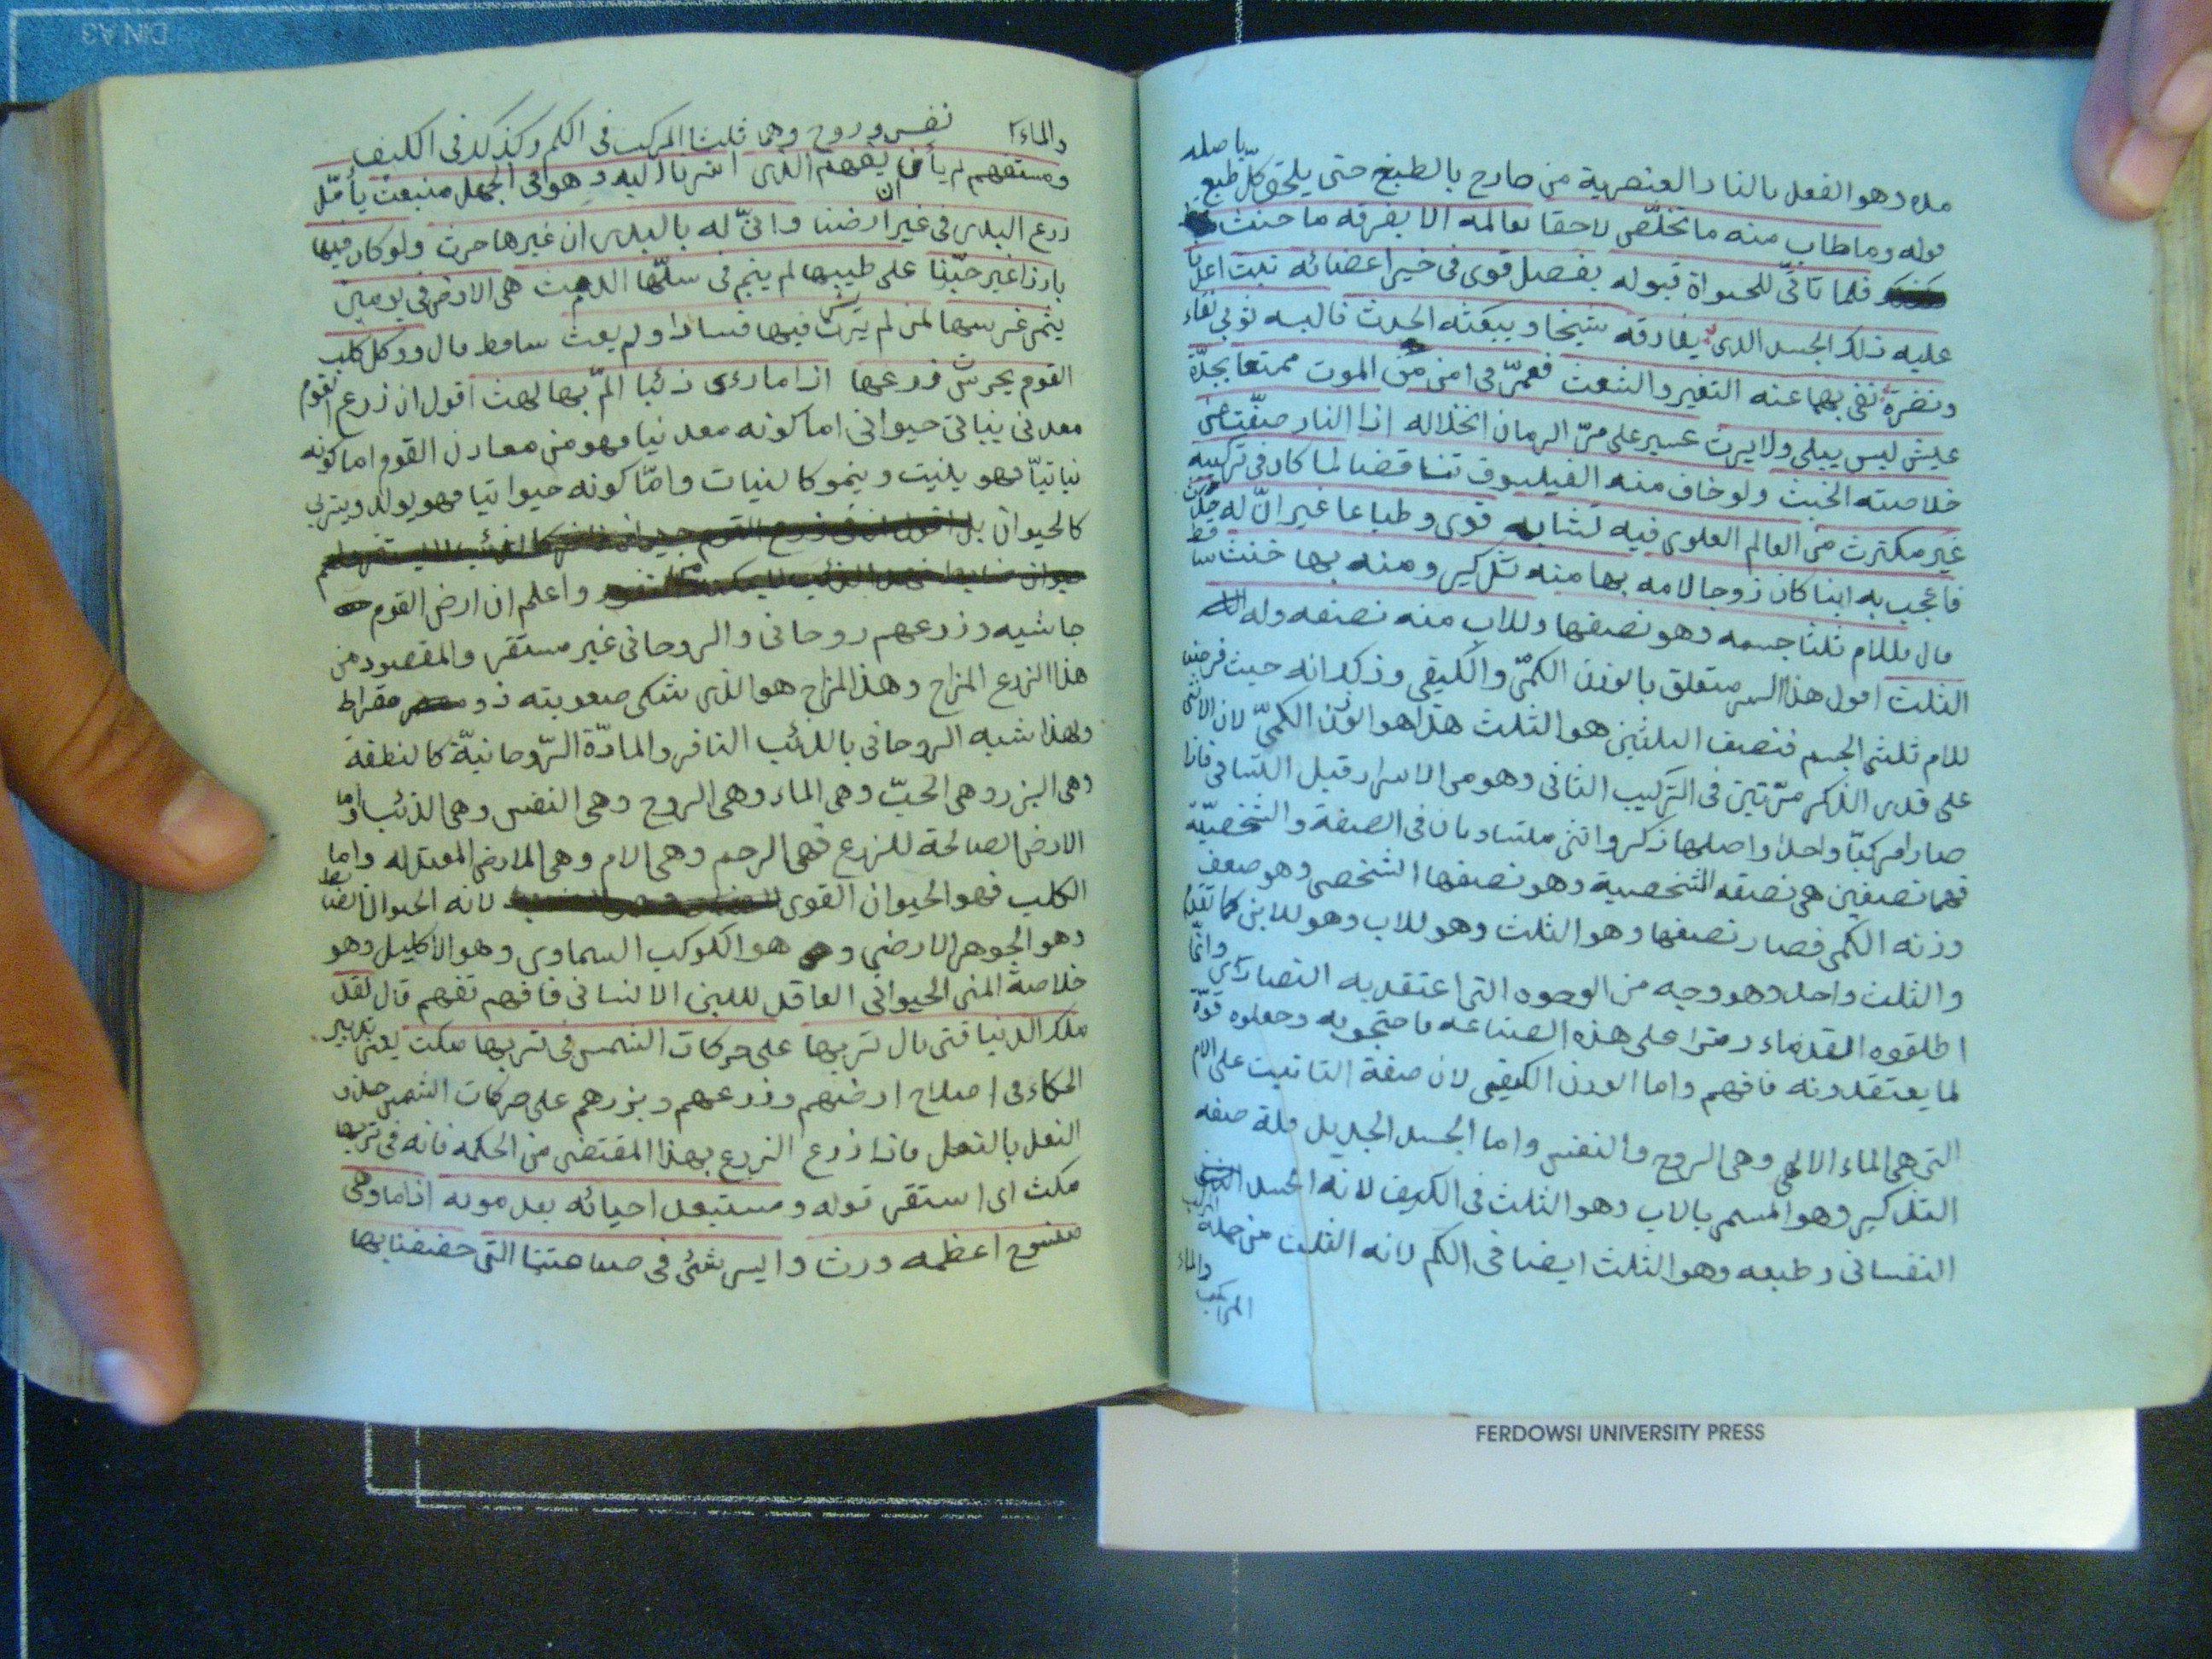 DIN A3
باصله
مله وهو الفعل بالنار العنصرية من خارج بالطبخ حتى يلحق كلّ طبع
قوله وما طاب منه ما تخلّص لاحقا بعالمه الا بفرقه ما خنث
فلما تأتّى للحيواة قبوله بفصل قوى في خير اعضائه تلبث
عليه ذلك الجسد الذى يفارقه شيخا ويبعثه الحدث فالبسه ثوبي نقاء
ونضرة نفى بهما عنه التغير والشعث فعمّر في امن من الموت ممتعا بجدّة
عيش ليس يبلى ولا يرث عسير على مرّ الزمان انحلاله اذا النار صفّت من
خلاصته الخبث ولو خاف منه الفيلسوف تناقضا لما كان في تركيبه
غير مكترث من العالم العلوى فيه تشابه قوى وطباعا غير انّ له
فاعجب به ابنا كان زوجا لامه بها منه تذكير ومنه بها خنث
قال للام ثلثا جسمه وهو نصفها وللاب منه نصفه وله
الثلث اقول هذا السر متعلق بالوزن الكمّى والكيفى وذلك انه حيث فرضنا
للام ثلثى الجسم فنصف الثلثين هو الثلث هذا هو الوزن الكمىّ لان الانثى
على قدر الذكر مرّتين في التركيب الثانى وهو من الاسرار قبل التساوى فاذا
صارا مركبّا واحدا واصلها ذكر وانثى متساويان في الصفة والشخصيّة
فهما نصفين هى نصفه الشخصية وهو نصفها الشخصى وهو ضعف
وزنه الكمى فصار نصفها وهو الثلث وهو للاب وهو للابن كما تقدم
والثلث واحد وهو وجه من الوجوه التى اعتقد به النصارى وانّما
اطلقوه القدماء رمزا على هذه الصناعه فاحتجوا به وجعلوه قوّة
لما يعتقدونه فافهم واما الوزن الكيفى لان صفة التانيث على الام
التى هى الماء الالهى وهى الروح والنفس واما الجسد الجديد فله صفه
التذكير وهو المسمى بالاب وهو الثلث في الكيف لانه الجسد
النفسانى وطبعه وهو الثلث ايضا في الكم لانه الثلث من جملة
المركب
والماء
والماء نفس وروح وهما ثلثا المركب في الكم وكذلك في الكيف
ومستفهم لم يأن ان يفهم الذى اشرنا اليه وهو في الجهل منبعث يأمّل
زرع البذر في غير ارضنا وانىّ له بالبذر ان غيرها حرث ولو كان فيها
بارزا غير حبّنا على طيبها لم ينم في سلّها الدمث هى الارض في يومين
يثمر غرسها لمن لم يثر فيها فسادا ولم يعث قال وكل كلب
القوم يحرس زرعها اذا ما رءى ذئبا المّ بها لهث اقول ان زرع القوم
معدنى نباتى حيوانى اما كونه معدنيا فهو من معادن القوم اما كونه
نباتيّا فهو ينبت وينمو كالنبات وامّا كونه حيوانيا فهو يولد ويتربى
كالحيوان
واعلم ان ارض القوم
جاشيه وزرعهم روحانى والروحانى غير مستقر والمقصود من
هذا الزرع المزاج وهذا المزاج هو الذى شكى صعوبته ذو مقراط
ولهذا شبه الروحانى بالذئب النافر والمادّة الرّوحانيّة كالنطفة
وهى البزر وهى الحبّ وهى الماء وهى الروح وهى النفس وهى الذئب واما
الارض الصالحة للزرع فهى الرحم وهى الام وهى الارض المعتدله واما
الكلب فهو الحيوان القوى لانه الحيوان
وهو الجوهر الارضى و هو الكوكب السماوى وهو الاكليل وهو
خلاصة المنى الحيوانى العاقد للبن الانسانى فافهم تفهم قال لقد
ملك الدنيا فتى نال تربها على حركات الشمس في تربها مكث يعنى تدبير
الحكماء في اصلاح ارضهم وزرعهم وبزرهم على حركات الشمس حذو
النعل بالنعل فاذا زرع الزرع بهذا المقتضى من الحكمه فانه في تربها
مكث اى استقر قوله ومستبعد احيائه بعد موته اذا ما وهى
اعظمه ورث وليس بشئ في صناعتنا التى خصصنا بها
FERDOWSI UNIVERSITY PRESS